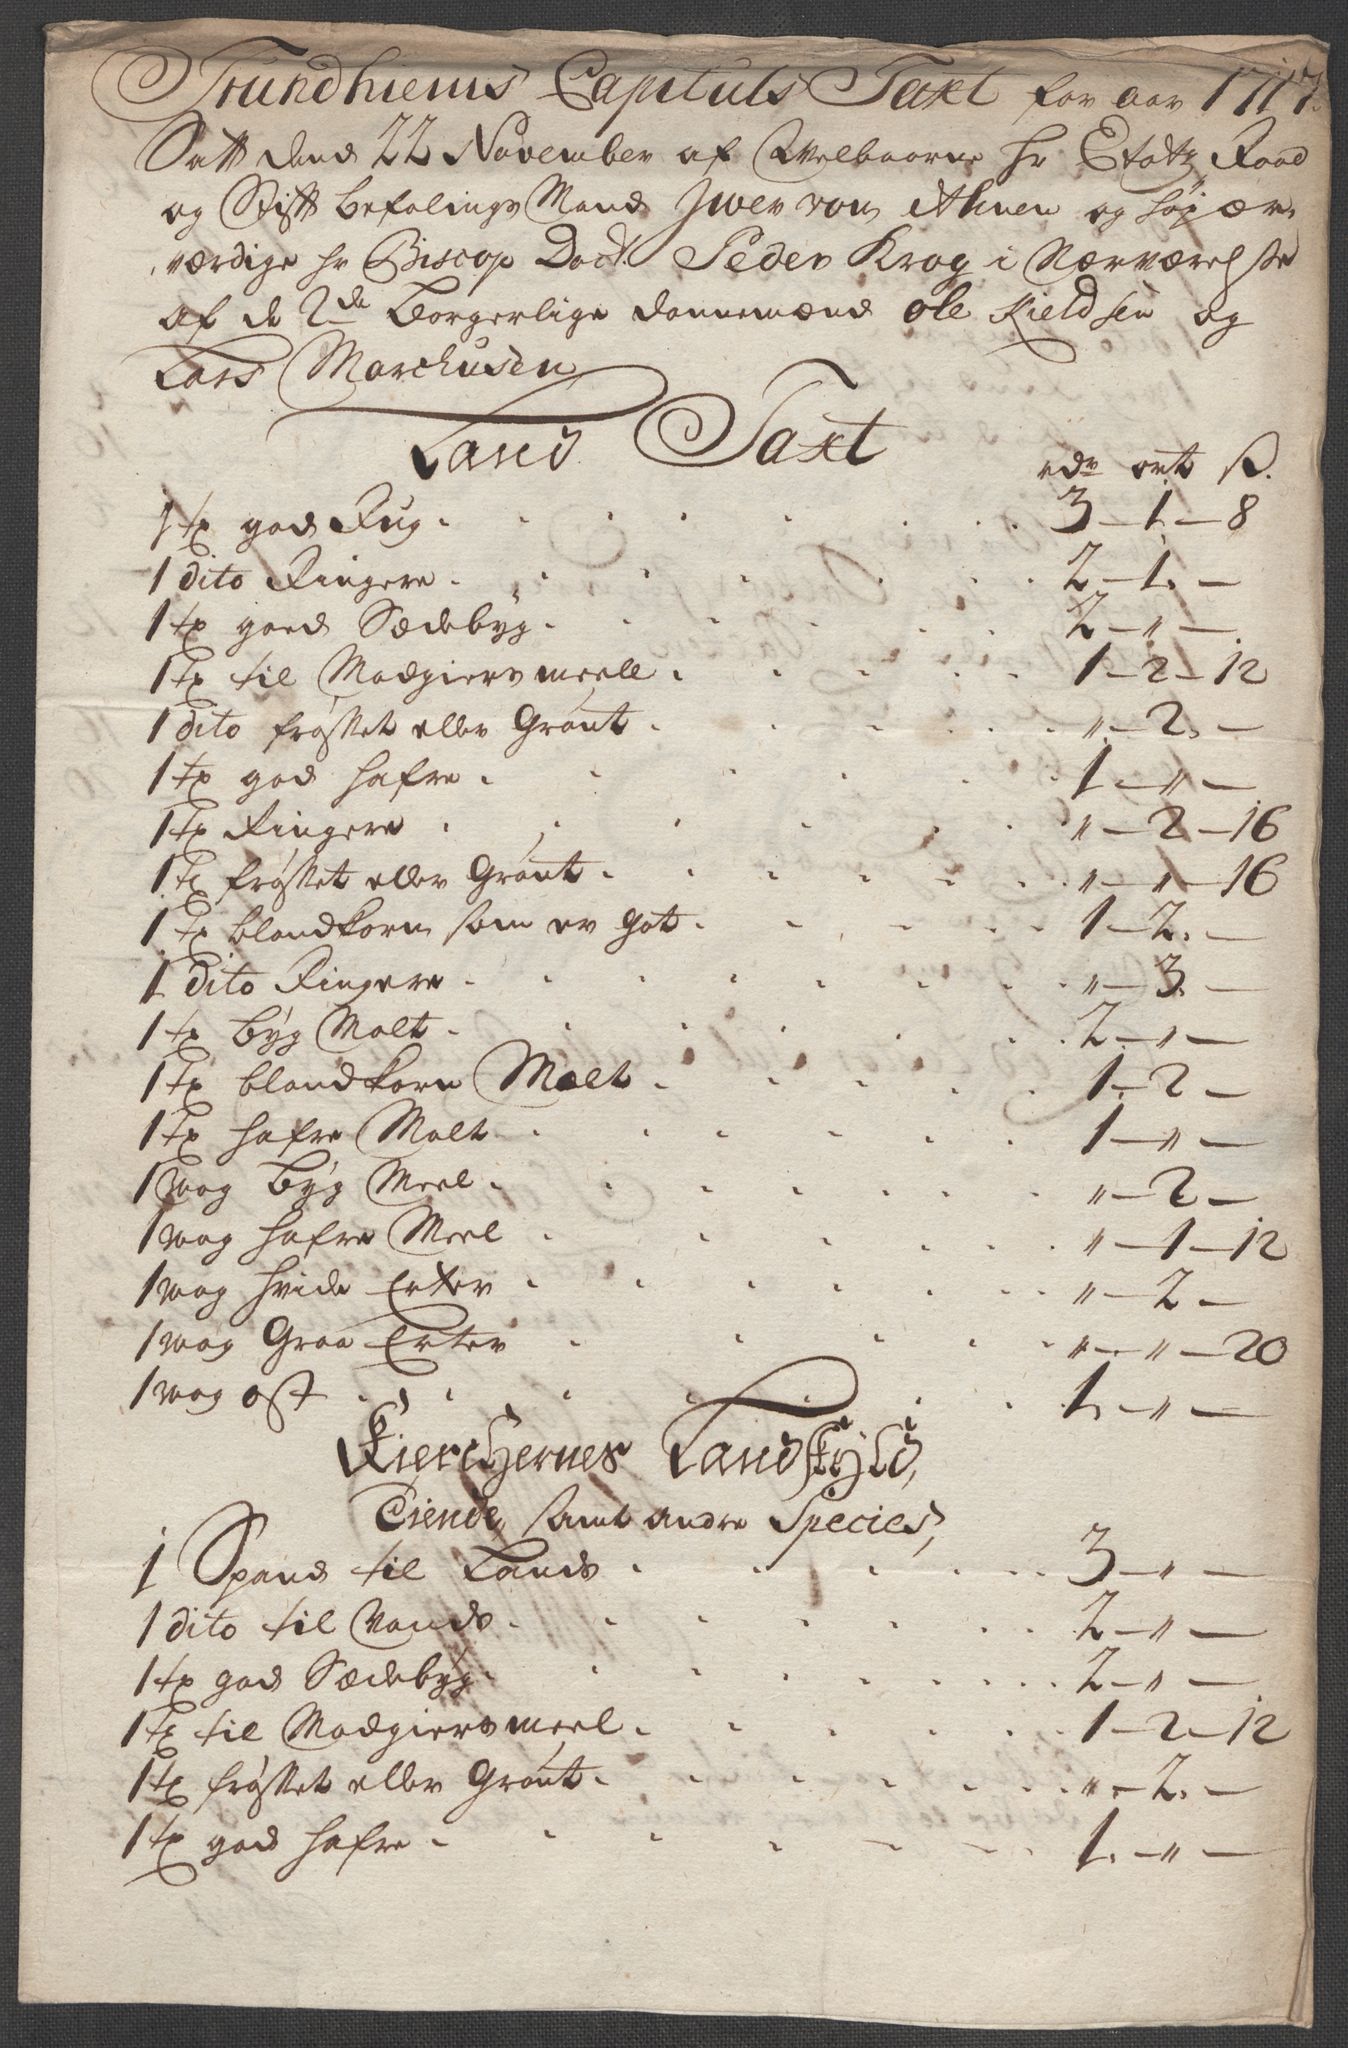 Trundhiems Capituls Taxt for aar 1717.
Satt dend 22 November af Welbaarne hr Etatz Raad
og Stifft befalings Mand Jwer von Ahnen og højær-
værdige hr Biscop Doct. Peder Krog i Nærværelse
af de 2de Borgerlige dannemænd Ole Kieldsen og
Lars Marchusen
Land Taxt
rdr ort ß.
1 tø god Rug 3 - 1 - 8
1 dito Ringere 2 - 1 -
1 tø goed Sædebyg 2 - " -
1 tø til Madgiers meell 1 - 2 - 12
1 dito frosset eller Grönt " - 2 -
1 tø god hafre 1 - " -
1 tø Ringere " - 2 - 16
1 tø frosset eller Grönt " - " - 16
1 tø blandkorn som er got 1 - 2 -
1 dito Ringere " - 3 -
1 tø byg Malt 2 - " -
1 tø blandkorn Malt 1 - 2 -
1 tø hafre Malt 1 - " -
1 wog byg Meel " - 2 -
1 wog hafre Meel " - 1 - 12
1 wog hvide Erter " - 2 -
1 wog Graa Erter " - " - 20
1 wog ost 1 - " -
Kierchernes Landskyld,
Tiende, samt andre Species,
1 Spand til Lands 3 - " -
1 dito til Vands 2 - " -
1 tø god Sædebyg 2 - " -
1 tø til Madgiers meel 1 - 2 - 12
1 tø frosset eller Grönt " - 2 -
1 tø god hafre 1 - " -